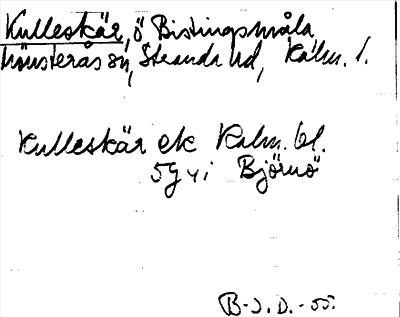 Kulleskär, ö Bistingsmåla
Mönsterås sn, Stranda hd, Kalm. l.
Kulleskär ek Kalm. bl.
5g4i Björnö
B-J. D. -55.